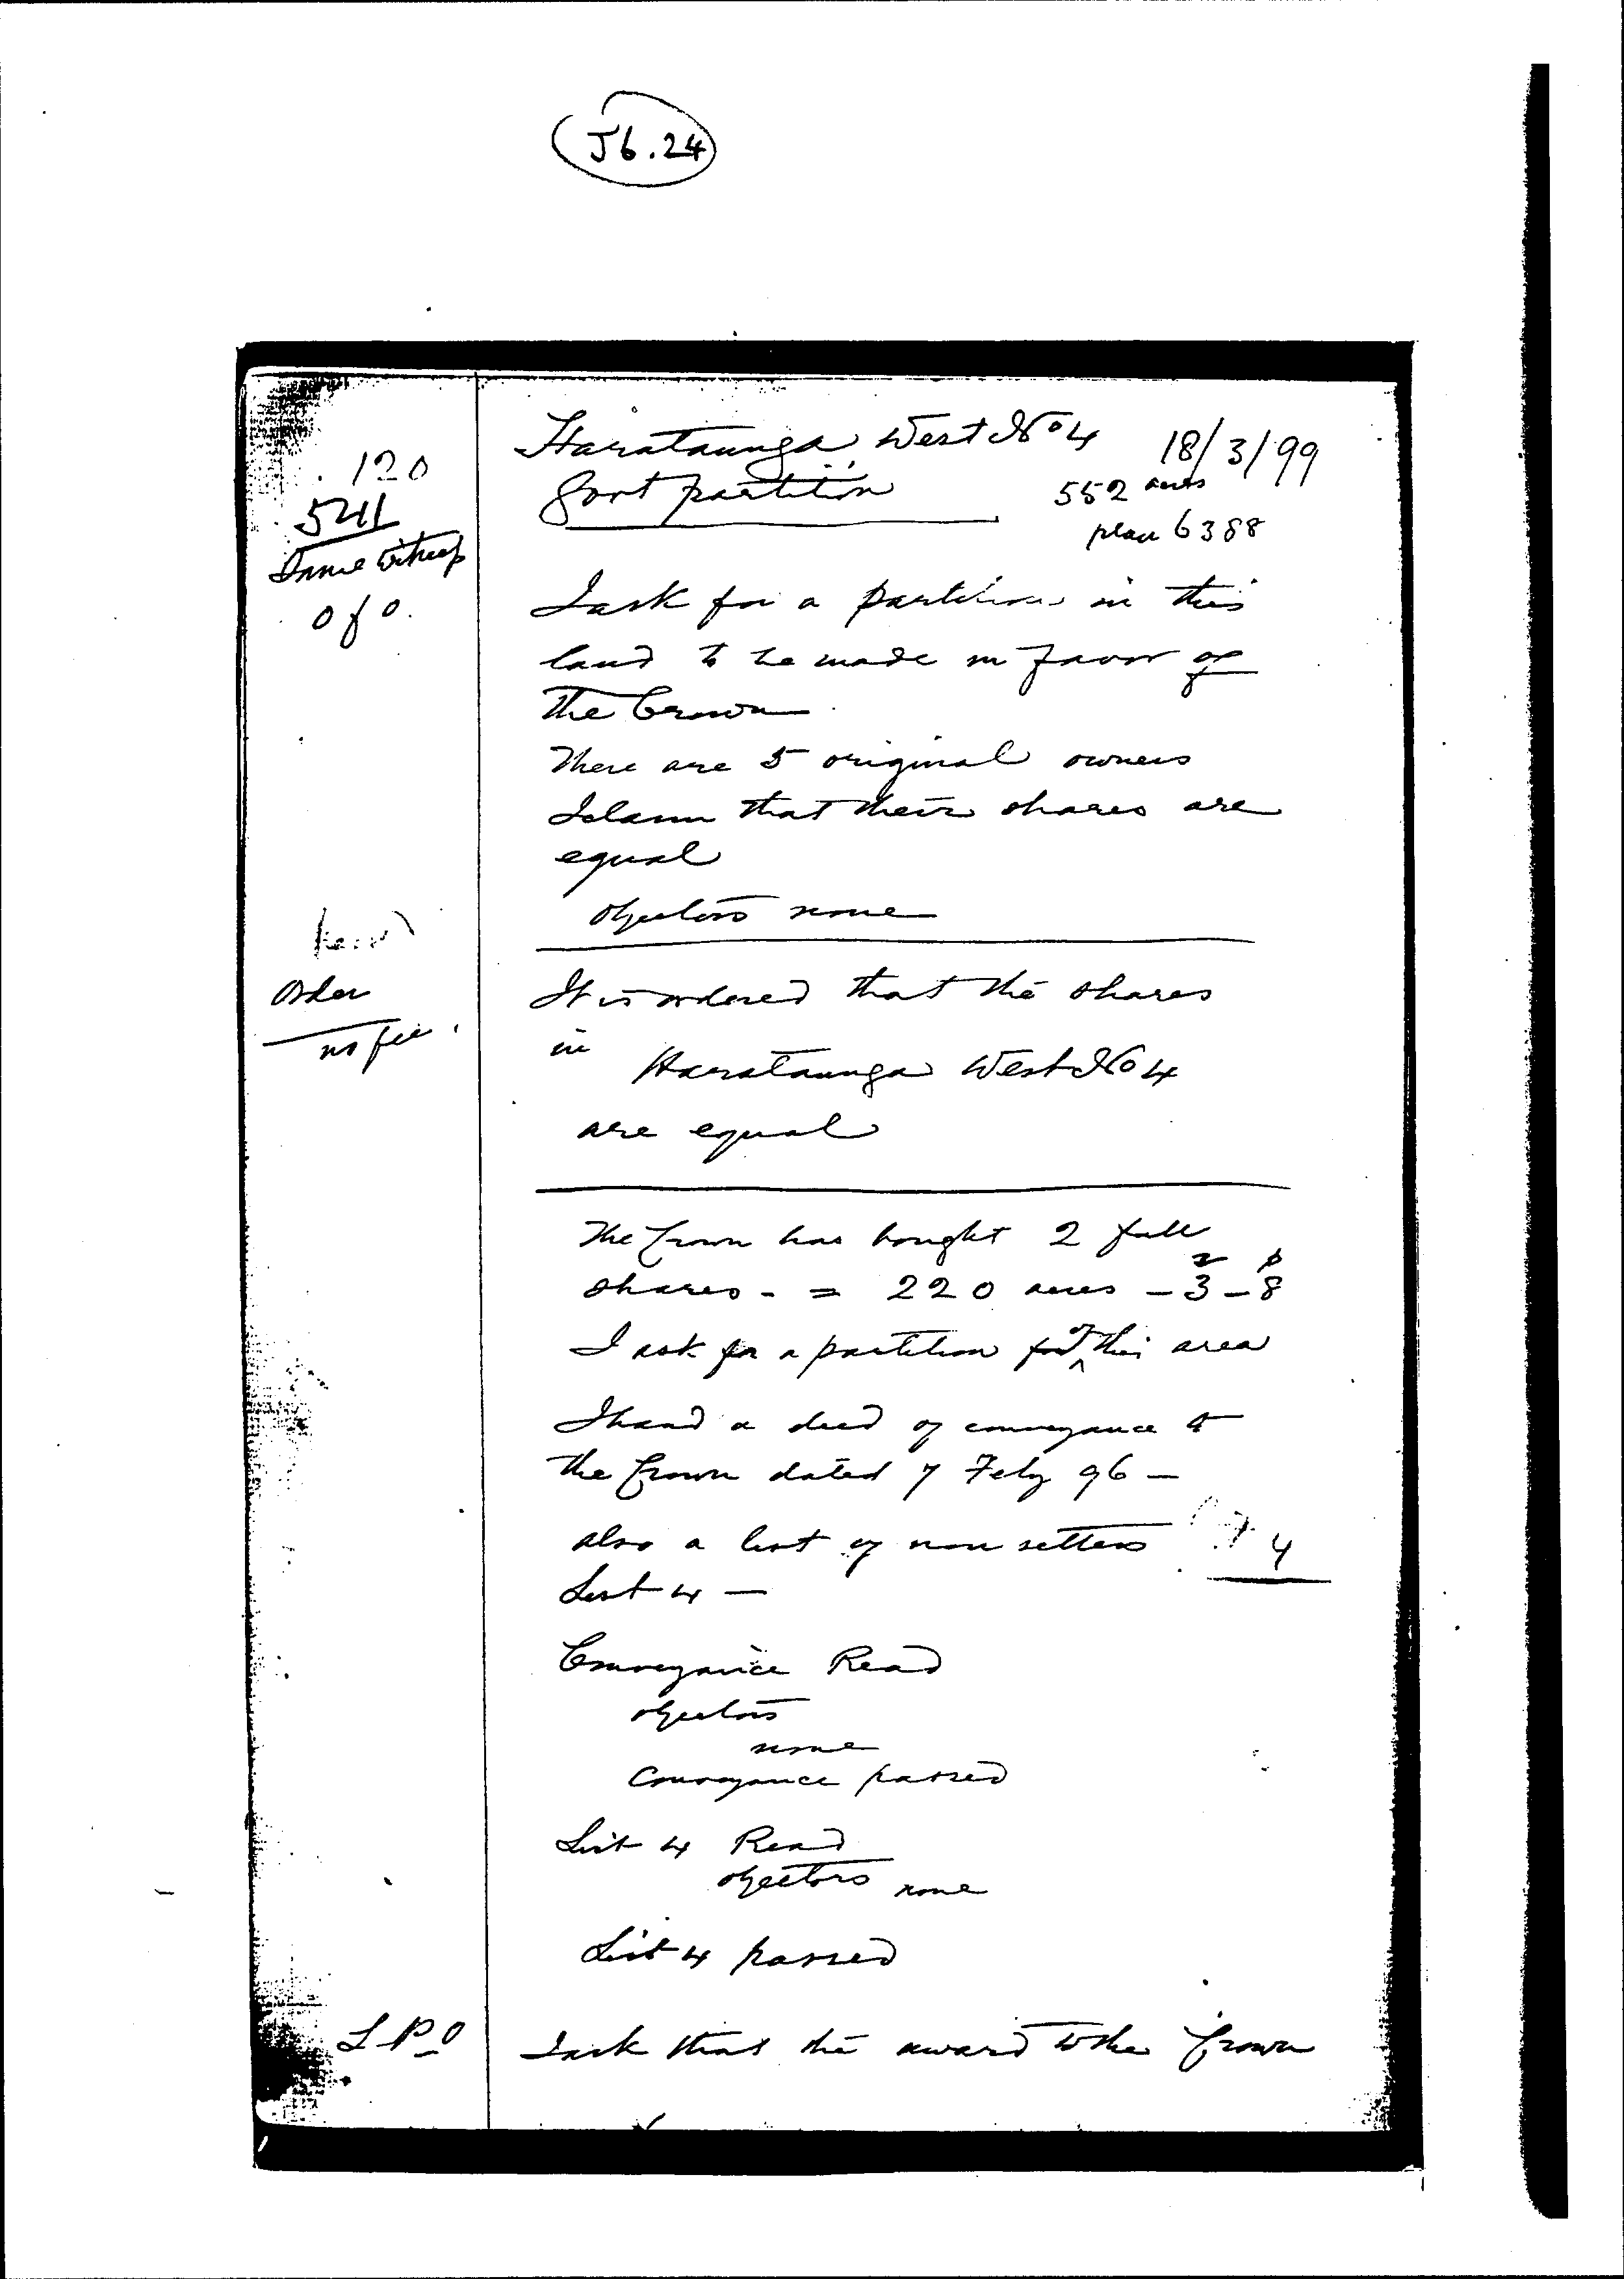 J6.24
Harataunga West No 4 18/3/99
120
Govt partition 552 acres
5211
plan 6388
o f o.
I ask for a partition in this
land to be made in favor of
the Crown
There are 5 original owners
I claim that their shares are
equal
objectors none
Order
It is ordered that the shares
no fee
in Harataunga West No 4
are equal
The Crown has bought 2 full
r p
shares - = 220 acres - 3 - 8
I ask for a partition of this area
I hand a deed of conveyance to
the Crown dated 7 Feby 96 -
also a list of non sellers 4
List 4 -
Conveyance Read
objectors
none
Conveyance passed
List 4 Read
objectors none
List 4 passed
L P O
I ask that the award to the Crown